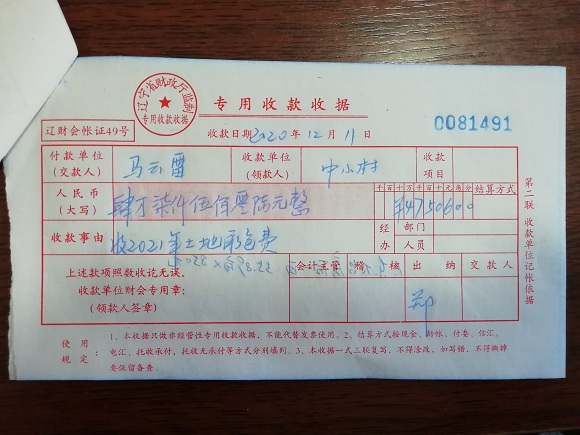 辽宁省财政厅监制
专用收款收据
专用收款收据
辽财会帐证49号
收款日期2020年12月11日
0081491
付款单位(交款人) 马云雷 收款单位(领款人) 中小村 收款项目
人民币(大写) 肆万柒仟伍佰零陆元整 千百十万千百十元角分 结算方式
¥4750600
收款事由 收2021年土地承包费 经办 部门 人员
上述款项照数收讫无误。
收款单位财会专用章:
(领款人签章)
会计主管 稽核 出纳 交款人
郑
使用规定: 1、本收据只做非经营性专用收款收据,不能代替发票使用。2、结算方式按现金、转帐、付委、信汇、
电汇、托收承付,托收无承付等方式分别填列。3、本收据一式三联复写,不得涂改,如写错,不得撕掉
要保留备查。
第二联 收款单位记帐依据